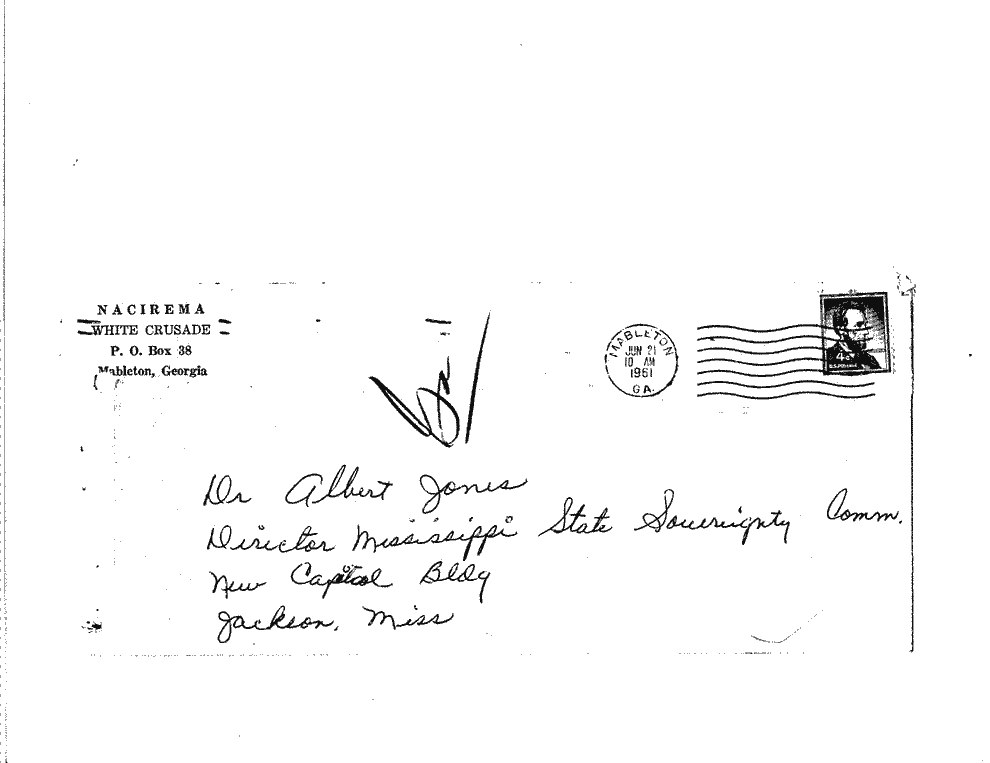 NACIREMA
WHITE CRUSADE
P. O. Box 38
Mableton, Georgia
MABLETON
JUN 21
10 AM
1961
GA.
Dr Albert Jones
Director Mississippi State Sovereignty Comm.
New Capitol Bldg
Jackson, Miss